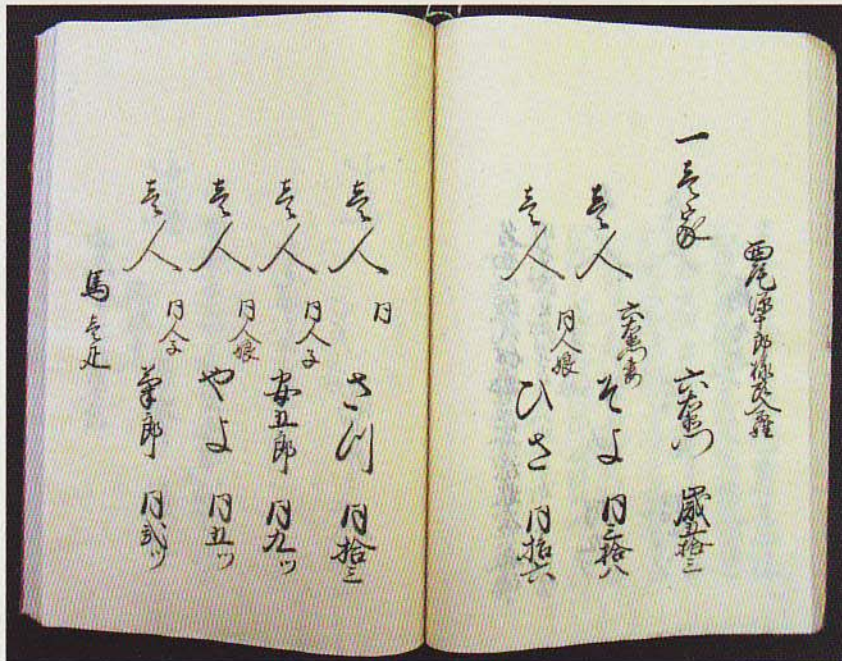 西尾 郎様
一壱家 六右衛門 歳五拾三
壱人 六右衛門妻 そよ 同三拾八
壱人 同人娘 ひさ 同拾六
壱人 同 さつ 同拾三
壱人 同人子 安五郎 同九ツ
壱人 同人娘 やよ 同五ツ
壱人 同人子 菊郎 同弐ツ
馬壱疋